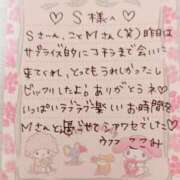 ♡ S様へ ♡
Sさん、ことMさん(笑)昨日は
サプライズ的にコキラまで会いに
来てくれし、とってもうれしかったし
ビックリしたよ。ありがとうネ♡
いっぱいラブラブ楽しいお時間を
Mさんと過ごせてシアワセでした♡
ウフフ ここみ